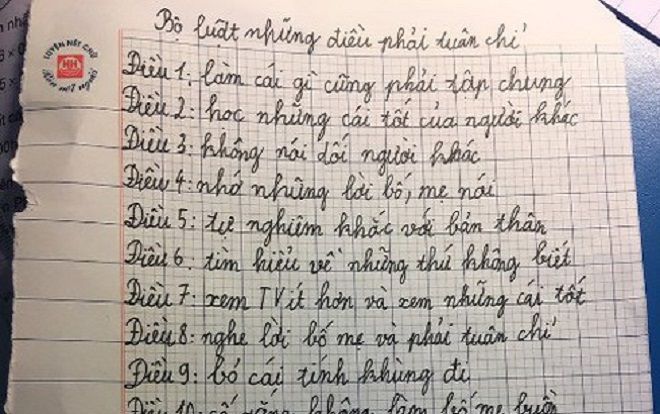 Bộ luật những điều phải tuân chỉ
LUYỆN NÉT CHỮ
HH
Rèn nết người
Điều 1: làm cái gì cũng phải tập chung
Điều 2: học những cái tốt của người khác
Điều 3: không nói dối người khác
Điều 4: nhớ những lời bố, mẹ nói
Điều 5: tự nghiêm khắc với bản thân
Điều 6: tìm hiểu về những thứ không biết
Điều 7: xem TV ít hơn và xem những cái tốt
Điều 8: nghe lời bố mẹ và phải tuân chỉ
Điều 9: bỏ cái tính khùng đi
Điều 10: cố gắng không làm bố mẹ buồn